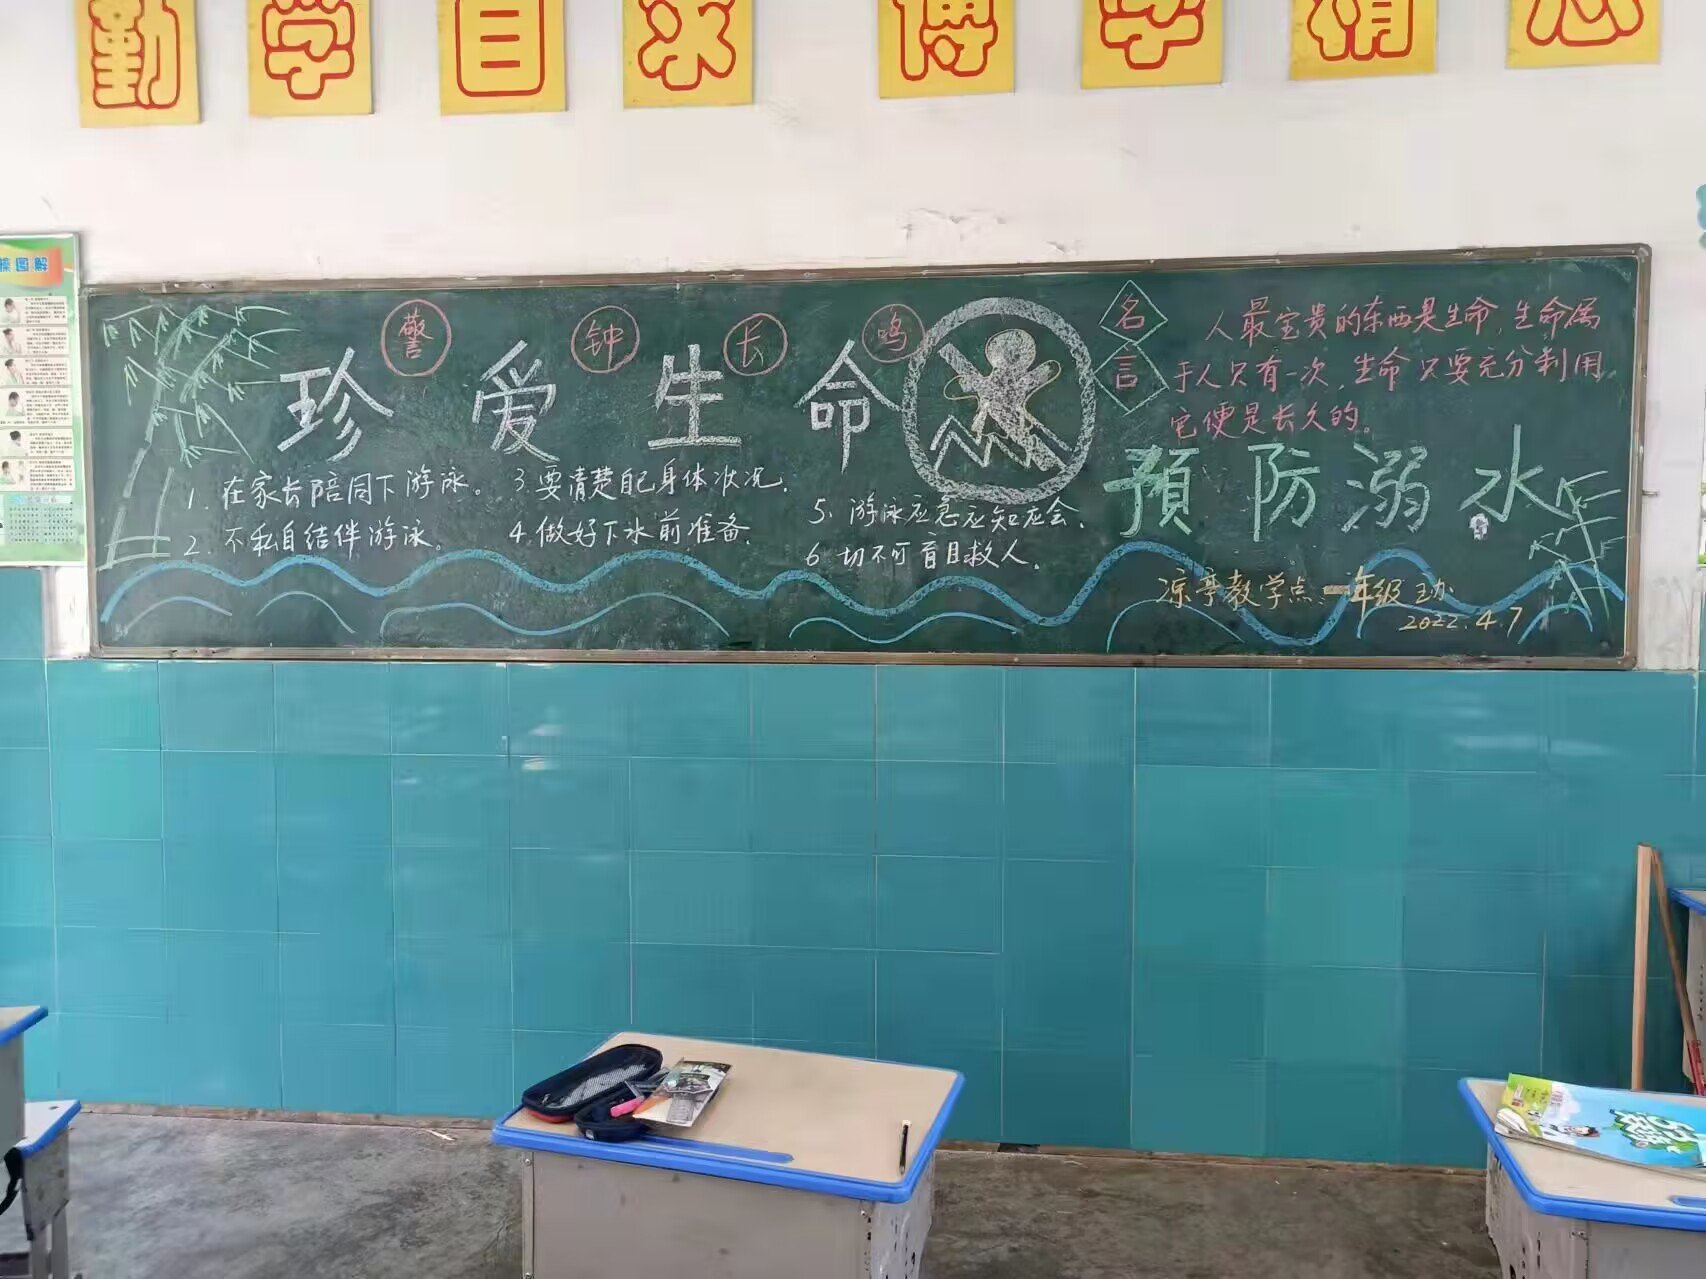 勤学自求 博学精思
操图解
警钟长鸣
珍爱生命
1. 在家长陪同下游泳。
2. 不私自结伴游泳。
3. 要清楚自己身体状况.
4. 做好下水前准备.
5. 游泳应急应知应会.
6 切不可盲目救人.
名言
人最宝贵的东西是生命,生命属
于人只有一次,生命只要充分利用,
它便是长久的。
預防溺水
凉亭教学点一年级 主办
2022.4.7